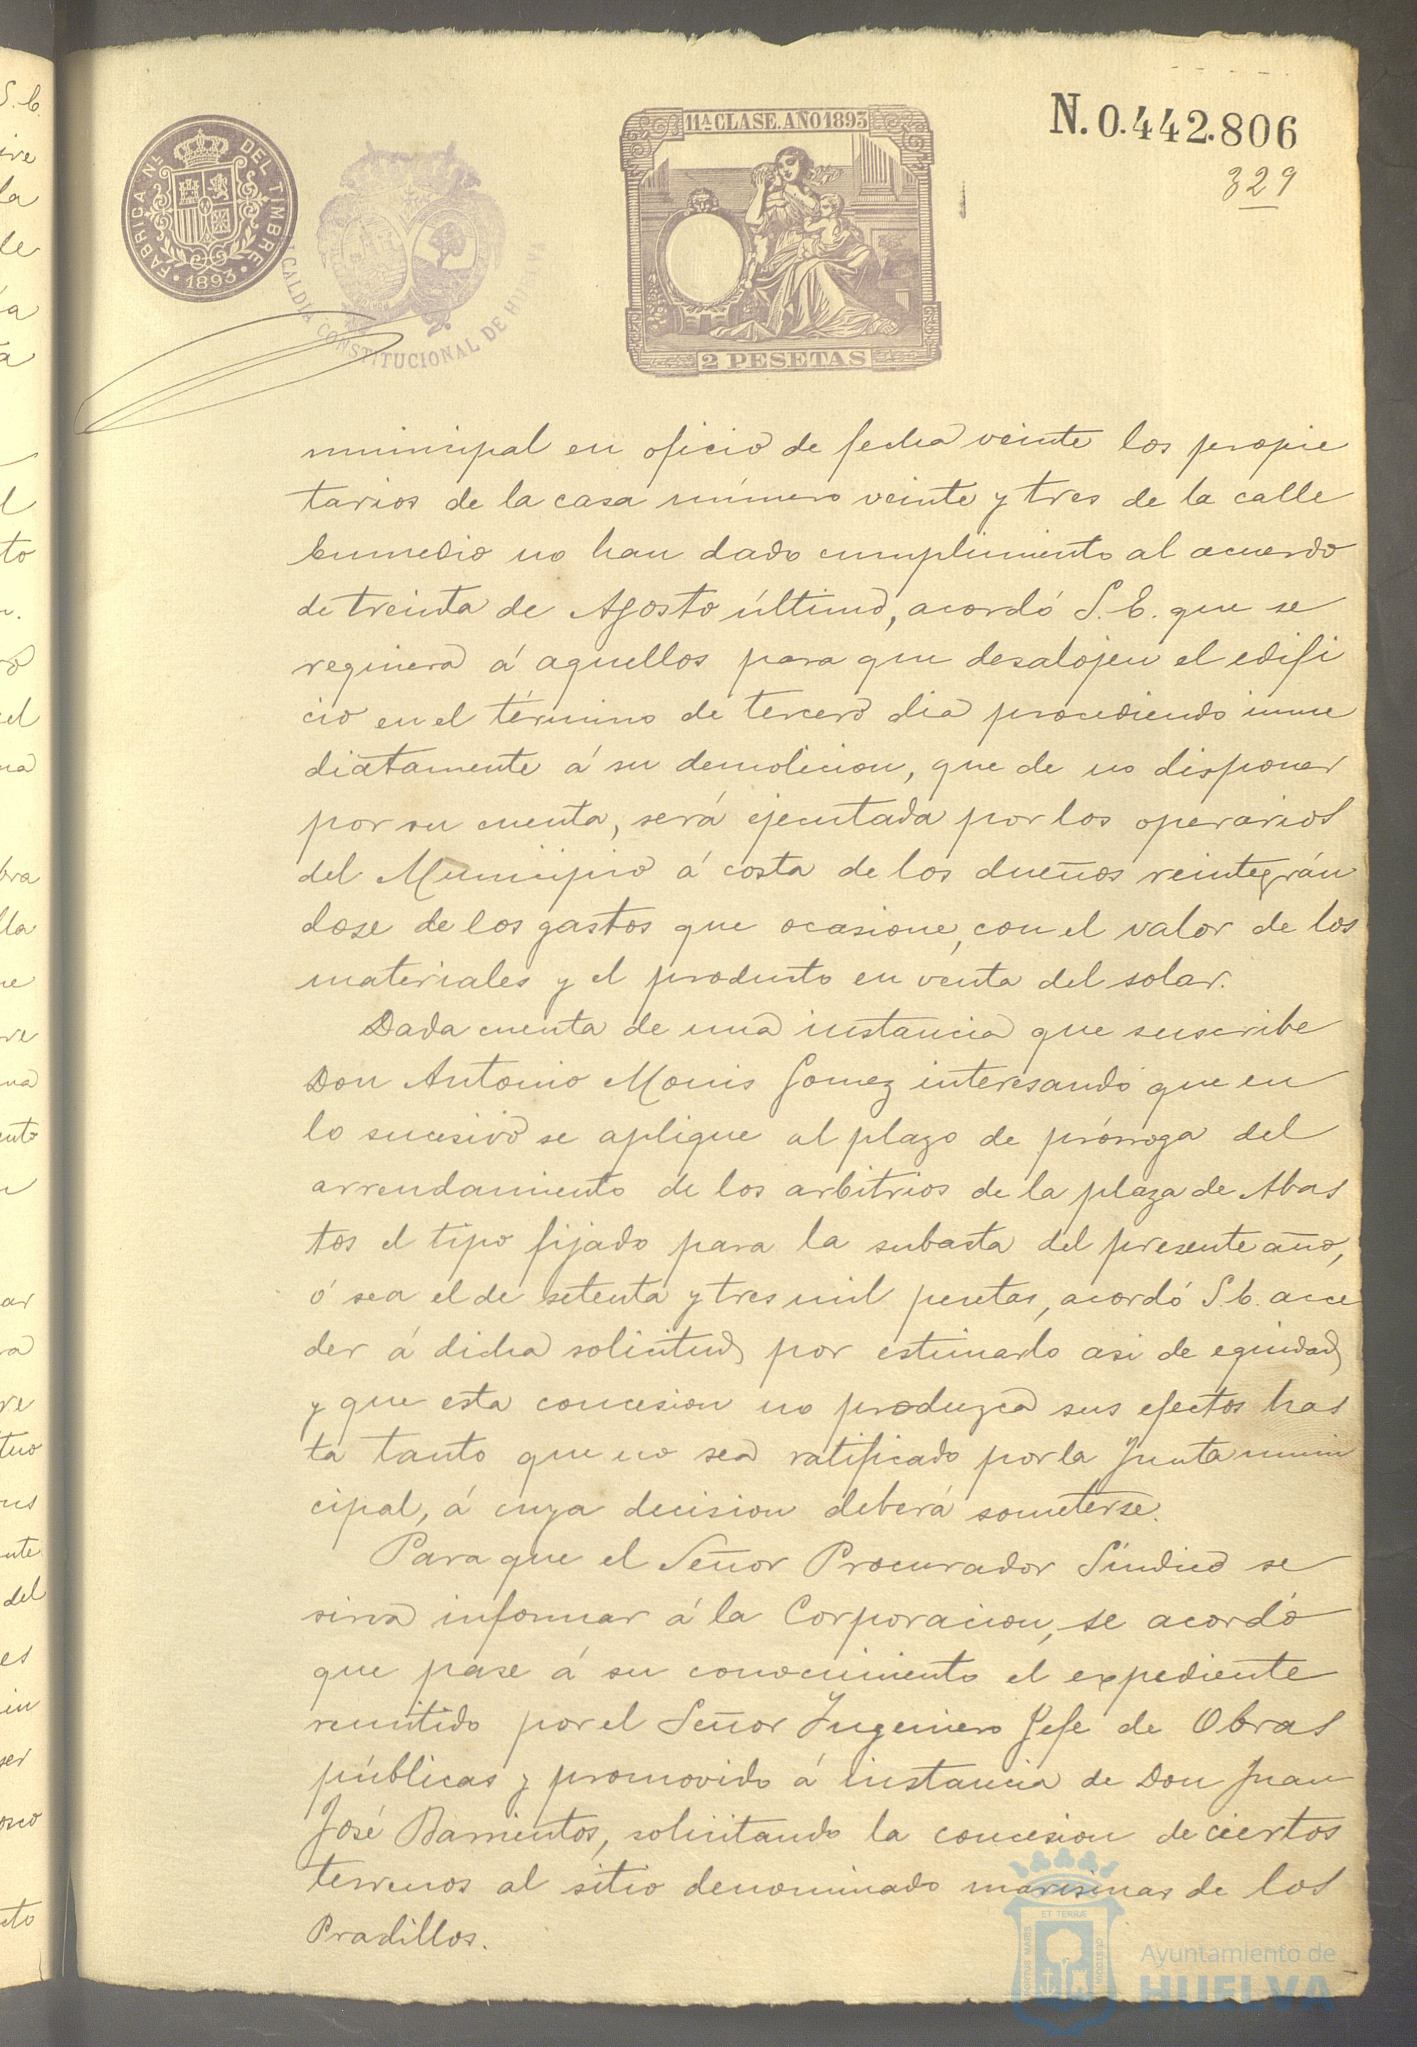 N. 0.442.806
329
11ª CLASE. AÑO 1893
2 PESETAS
FABRICA NL. DEL TIMBRE
1893
ALCALDÍA CONSTITUCIONAL DE HUELVA
municipal en oficio de fecha veinte los propie
tarios de la casa número veinte y tres de la calle
Enmedio no han dado cumplimiento al acuerdo
de treinta de Agosto último, acordó S. E. que se
requiera á aquellos para que desalojen el edifi
cio en el término de tercero dia procediendo inme
diatamente á su demolicion, que de no disponer
por su cuenta, será ejecutada por los operarios
del Municipio á costa de los dueños reintegrán
dose de los gastos que ocasione, con el valor de los
materiales y el producto en venta del solar.
Dada cuenta de una instancia que suscribe
Don Antonio Monis Gomez interesando que en
lo sucesivo se aplique al plazo de prórroga del
arrendamiento de los arbitrios de la plaza de Abas
tos el tipo fijado para la subasta del presente año,
ó sea el de setenta y tres mil pesetas, acordó S. E. acce
der á dicha solicitud por estimarlo asi de equidad,
y que esta concesion no produzca sus efectos has
ta tanto que no sea ratificado por la Junta muni
cipal, á cuya decision deberá someterse.
Para que el Señor Procurador Síndico se
sirva informar á la Corporacion, se acordó
que pase á su conocimiento el expediente
remitido por el Señor Ingeniero Jefe de Obras
públicas y promovido á instancia de Don Juan
José Barrientos, solicitando la concesion de ciertos
terrenos al sitio denominado marisinas de los
Pradillos.
Ayuntamiento de
HUELVA